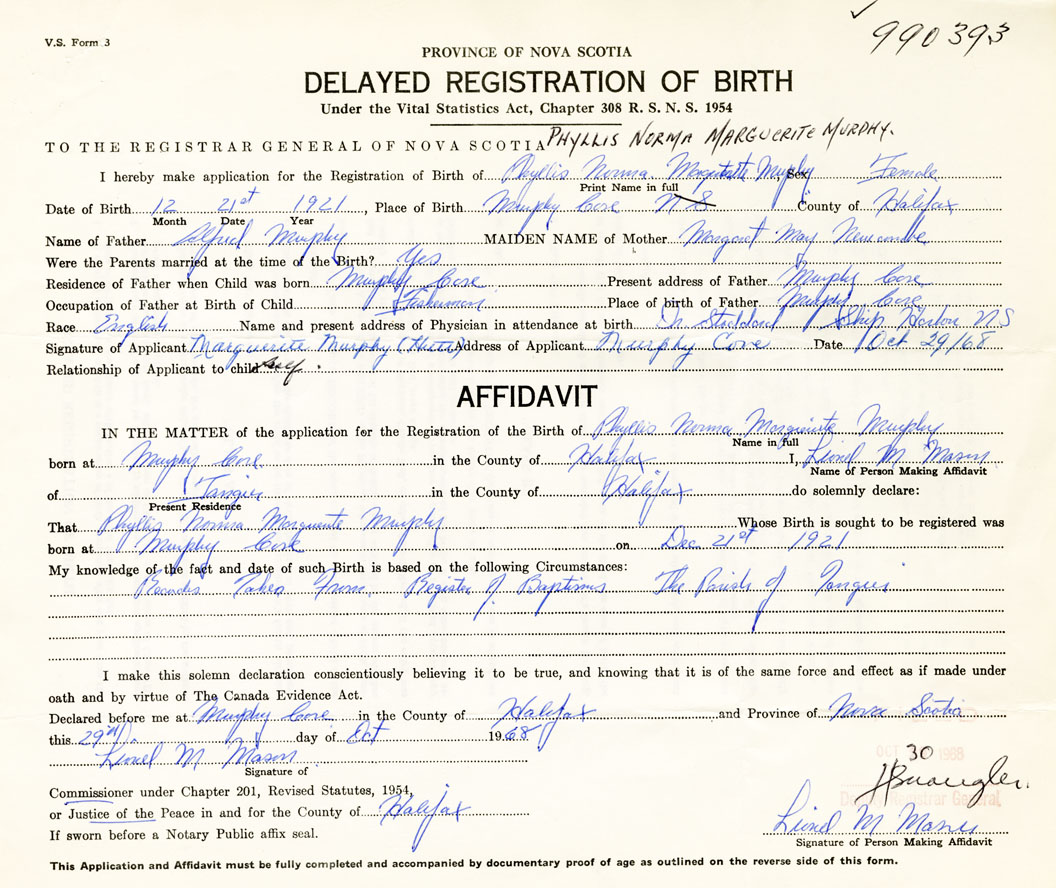 V.S. Form 3
990393
PROVINCE OF NOVA SCOTIA
DELAYED REGISTRATION OF BIRTH
Under the Vital Statistics Act, Chapter 308 R. S. N. S. 1954
PHYLLIS NORMA MARGUERITE MURPHY.
TO THE REGISTRAR GENERAL OF NOVA SCOTIA
I hereby make application for the Registration of Birth of Phyllis Norma Marguerite Murphy, Sex Female
Print Name in full
Date of Birth 12 21st 1921, Place of Birth Murphy Cove N S County of Halifax
Month Date Year
Name of Father Alfred Murphy MAIDEN NAME of Mother Margaret May Newcombe
Were the Parents married at the time of the Birth? Yes
Residence of Father when Child was born Murphy Cove Present address of Father Murphy Cove
Occupation of Father at Birth of Child Fisherman Place of birth of Father Murphy Cove
Race English Name and present address of Physician in attendance at birth Dr Ship Harbor N S
Signature of Applicant Marguerite Murphy Address of Applicant Murphy Cove Date Oct 29/68
Relationship of Applicant to child self.
AFFIDAVIT
IN THE MATTER of the application for the Registration of the Birth of Phyllis Norma Marguerite Murphy
Name in full
born at Murphy Cove in the County of Halifax I, Lionel M Mason
Name of Person Making Affidavit
of Tangier in the County of Halifax do solemnly declare:
Present Residence
That Phyllis Norma Marguerite Murphy Whose Birth is sought to be registered was
born at Murphy Cove on Dec 21st 1921
My knowledge of the fact and date of such Birth is based on the following Circumstances:
Records Taken From Register of Baptisms The Parish of Tangier
I make this solemn declaration conscientiously believing it to be true, and knowing that it is of the same force and effect as if made under
oath and by virtue of The Canada Evidence Act.
Declared before me at Murphy Cove in the County of Halifax and Province of Nova Scotia
this 29th day of Oct 1968
Lionel M Mason
Signature of
OCT 30 1968
Commissioner under Chapter 201, Revised Statutes, 1954,
Deputy Registrar General
or Justice of the Peace in and for the County of Halifax
Lionel M Mason
If sworn before a Notary Public affix seal.
Signature of Person Making Affidavit
This Application and Affidavit must be fully completed and accompanied by documentary proof of age as outlined on the reverse side of this form.